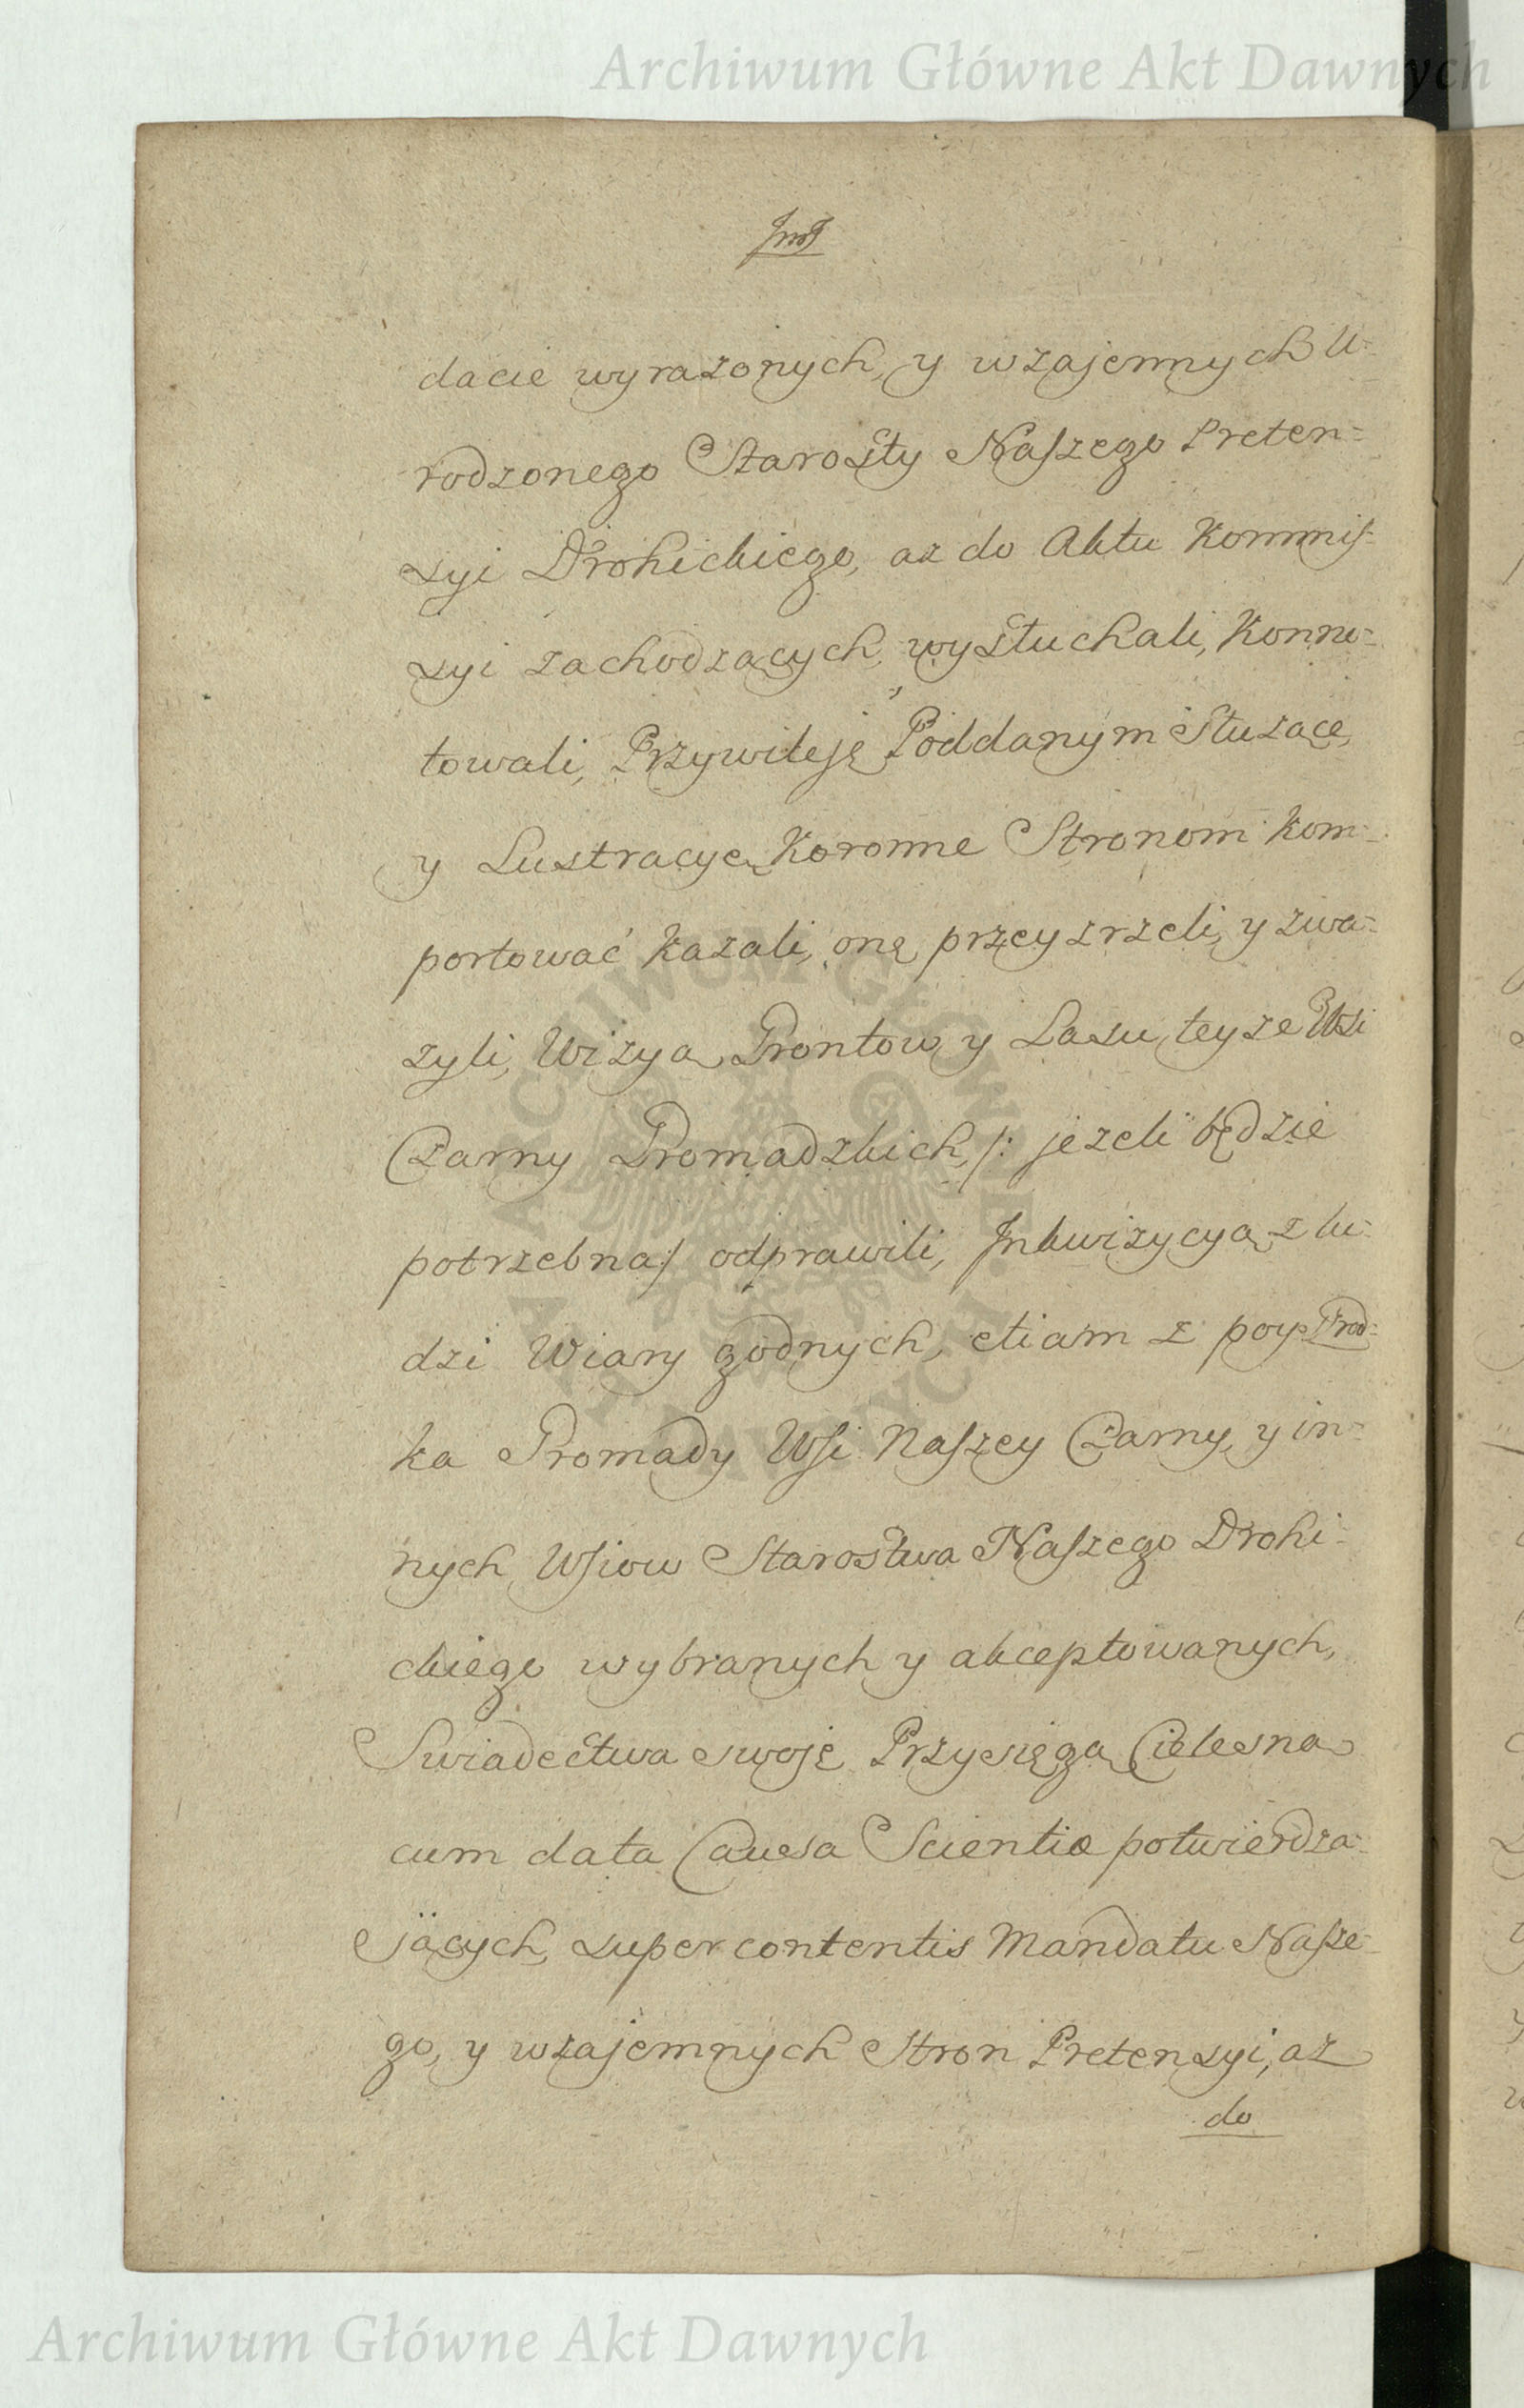 Archiwum Główne Akt Dawnych
dacie wyrazonych, y wzajemnych U=
rodzonego Starosty Naszego Preten=
syi Drohickiego, az do Aktu Kommis=
syi zachodzących, wysłuchali, Konno=
towali, Przywileje Poddanym Słuzące,
y Lustracye Koronne Stronom kom=
portować kazali, onę przeyzrzeli, y zwa=
zyli, Wizyą Grontow y Lasu teyze Wsi
Czarny Gromadzkich, /: jezeli będzie
potrzebna:/ odprawili, Inkwizycyą z lu=
dzi Wiary godnych, etiam z pośrod=
ka Gromady Wsi Naszey Czarny, y in=
nych Wsiow Starostwa Naszego Drohi=
ckiego wybranych y akceptowanych,
Swiadectwa swoje Przysięgą Cielesną
cum data Causa Scientiæ potwierdza=
jących, super contentis Mandatu Nasze=
go, y wzajemnych Stron Pretensyi, az
do
ARCHIWUM GŁÓWNE AKT DAWNYCH
Archiwum Główne Akt Dawnych